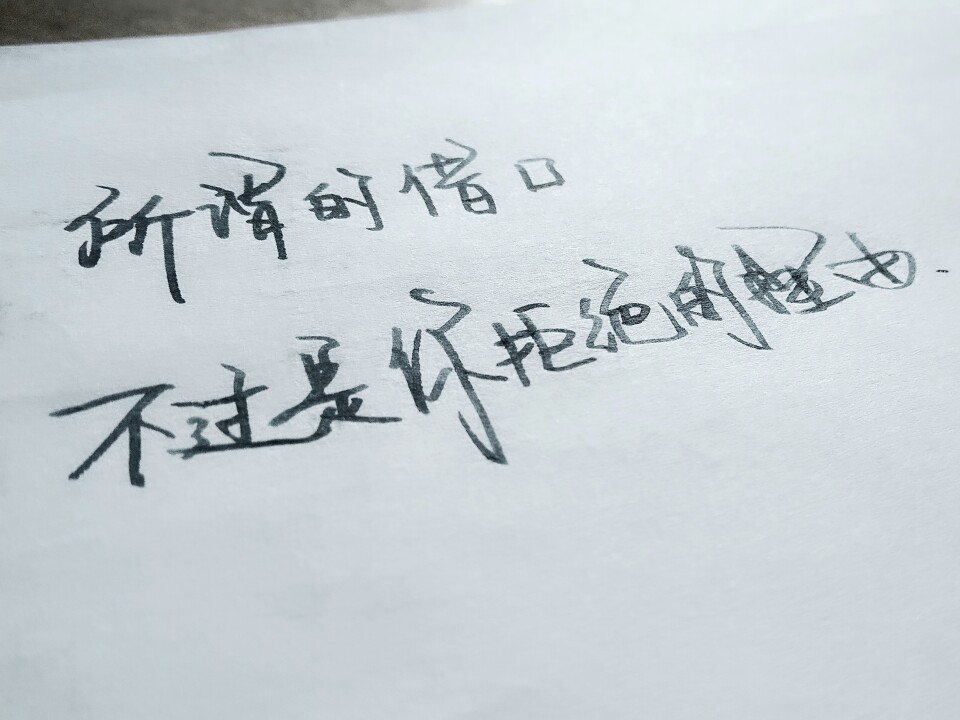 所谓的借口
不过是你拒绝的理由.